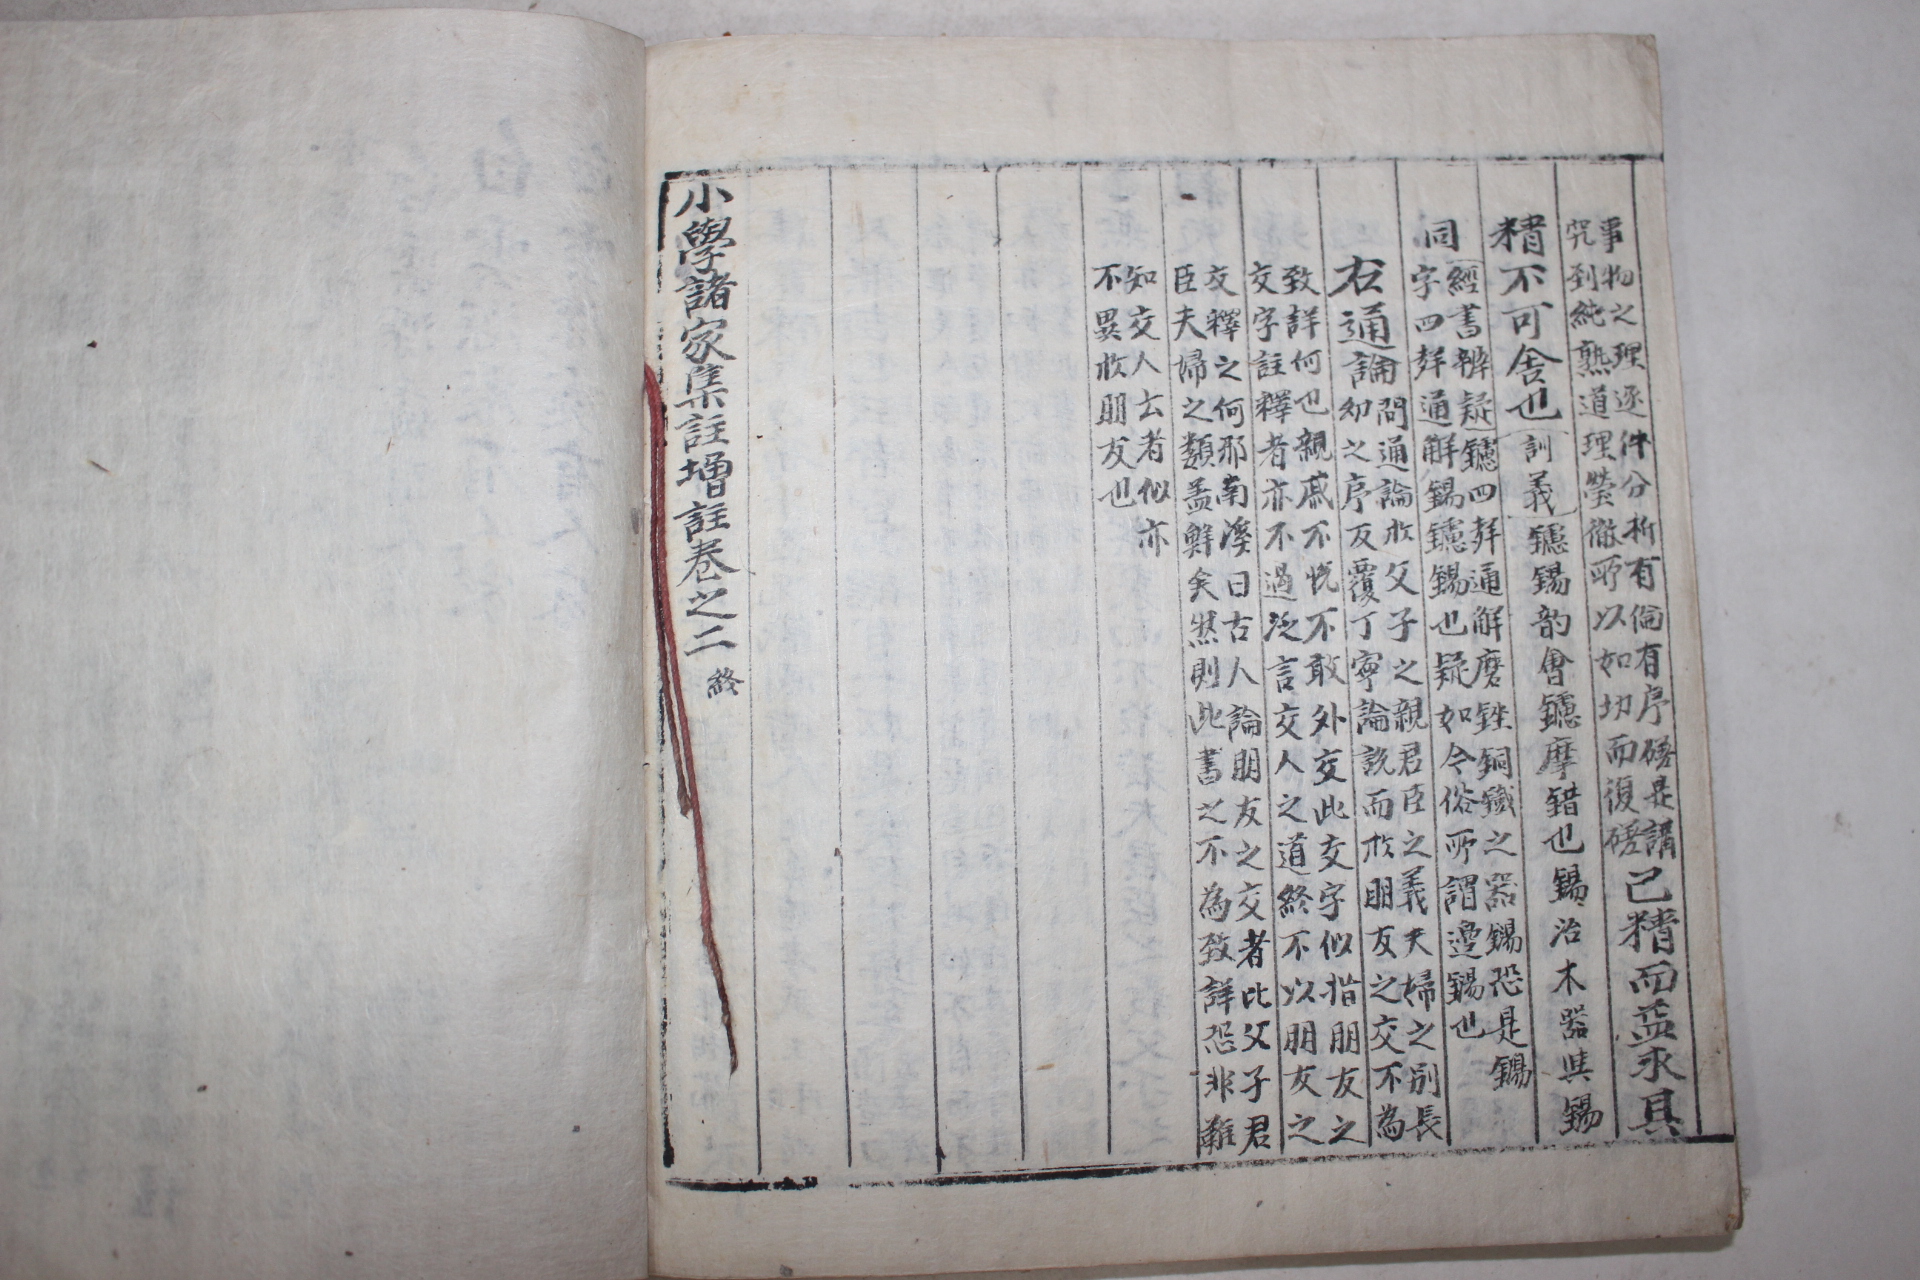 事物之理逐件分析有倫有序磋是講
究到純熟道理瑩徹所以如切而復磋
已精而益求其
精不可舍也
訓義鑢鐋韵會鑢摩錯也鐋治木器與鐋
同
經書辨疑鑢四聲通解磨銼銅鐵之器鐋恐是鐋
字四聲通解鐋鑢鐋也疑如今俗所謂邊鐋也
右通論
問通論於父子之親君臣之義夫婦之別長
幼之序反覆丁寧論說而於朋友之交不為
致詳何也親戚不悅不敢外交此交字似指朋友之
交字註釋者亦不過泛言交人之道終不以朋友之
交釋之何那南溪曰古人論朋友之交者比父子君
臣夫婦之類盖鮮矣然則此書之不為致詳恐非難
知交人云者似亦
不異於朋友也
小學諸家集註增註卷之二 終